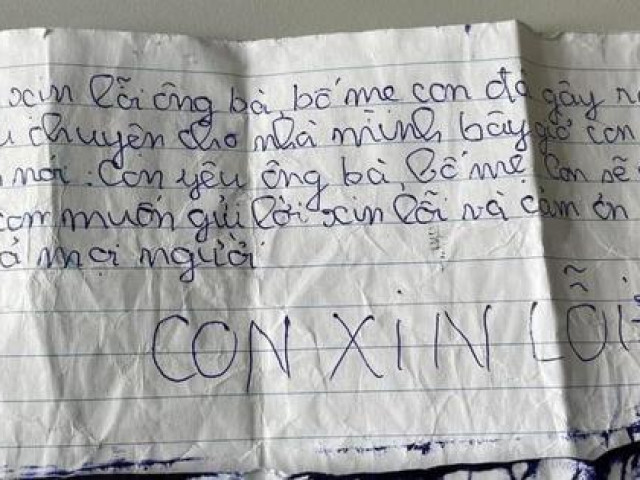 xin lỗi ông bà bố mẹ con đã gây
chuyện cho nhà mình bây giờ con
nơi. Con yêu ông bà, bố mẹ Con sẽ
con muốn gửi lời xin lỗi và cảm ơn
mọi người
CON XIN LỖI